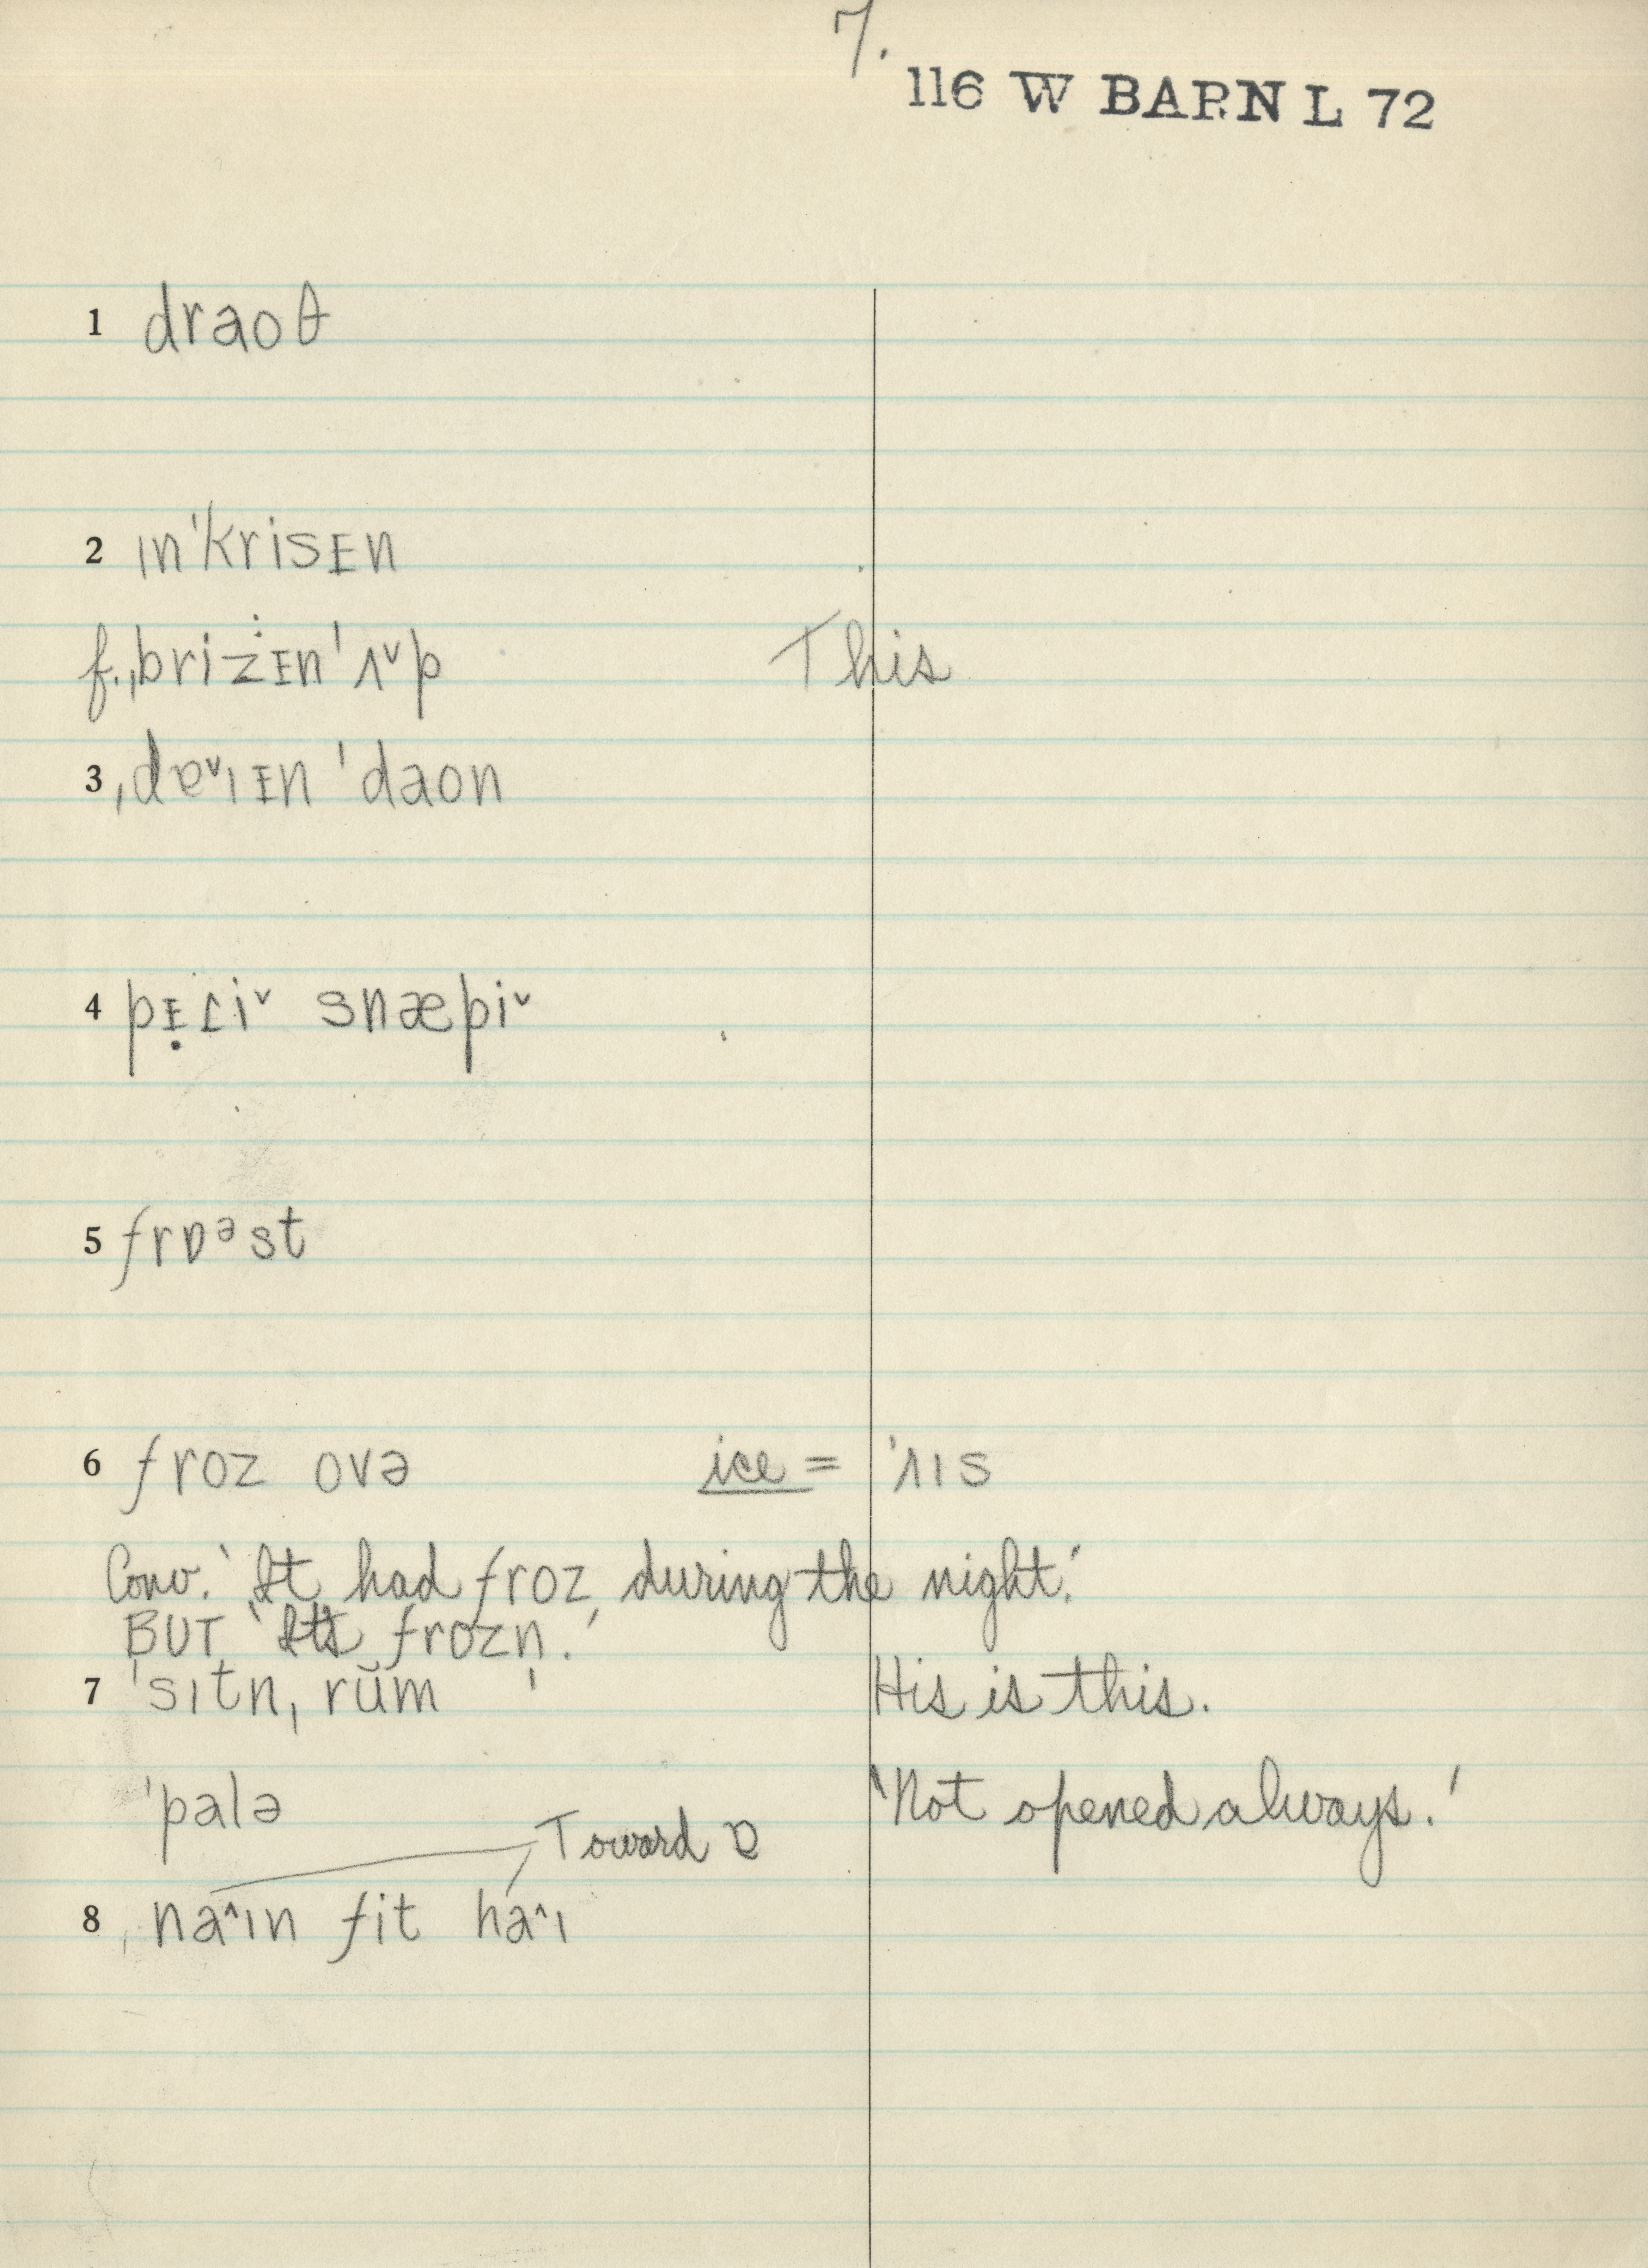 7.
116 W BARN L 72
1 draoθ
2 ɪn'krisᴇn
f. ˌbrizᴇn 'ʌ˅p
This
3 ˌdɐ˅ɪᴇn 'daon
4 pᴇ̣ɾi˅ snæpi˅
5 frɒᵊst
6 froz ovə ice = 'ʌɪs
Conv. 'It had froz during the night.'
BUT 'It's frozn̩.'
7 'sɪtnˌrŭm His is this.
'palə 'Not opened always.'
Toward ɒ
8 na˄ɪn fit ha˄ɪ